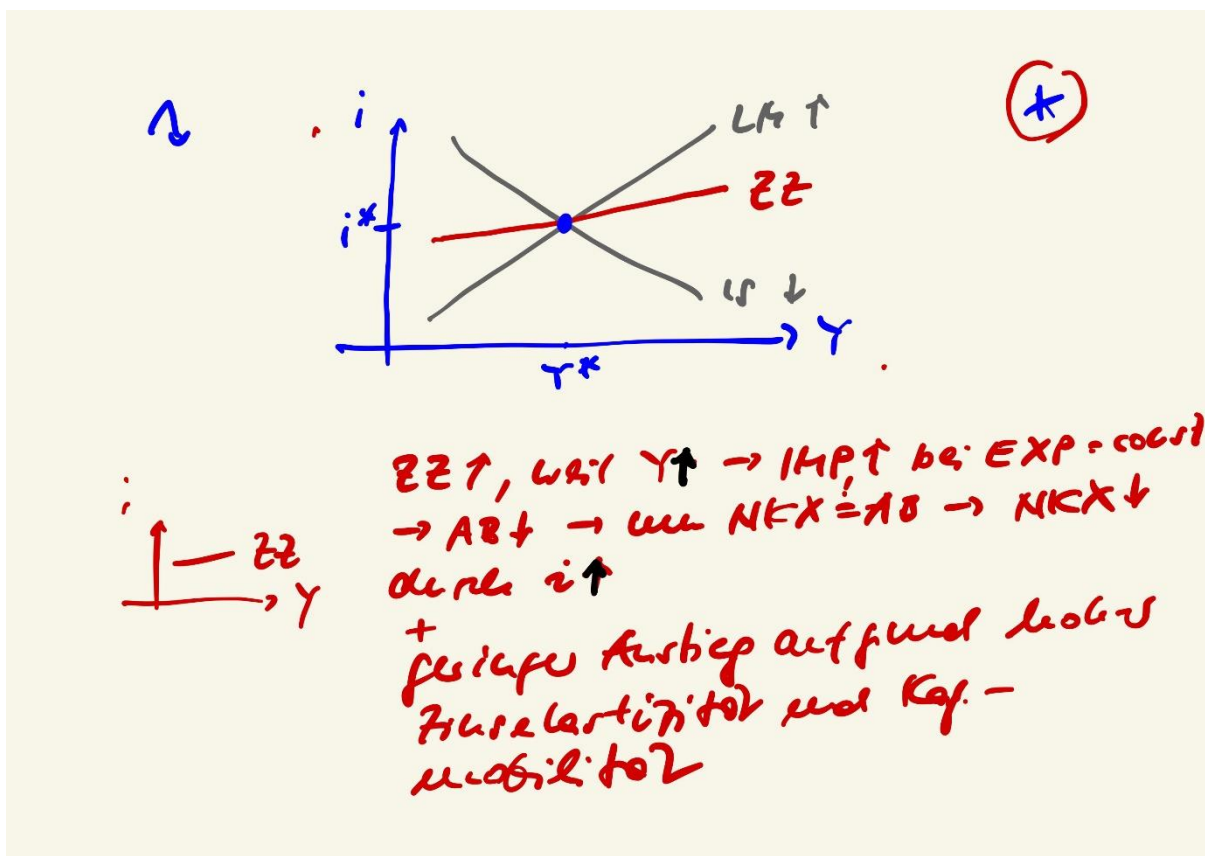 i
*
LM ↑
ZZ
i*
IS ↓
Y
Y*
ZZ↑, weil Y↑ → IMP↑ bei EXP = const
i
→ AB↓ → wenn NKX != AB → NKX↓
ZZ
durch i↑
Y
+
geringer Anstieg aufgrund hoher
Zinselastizität und Kap.-
mobilität